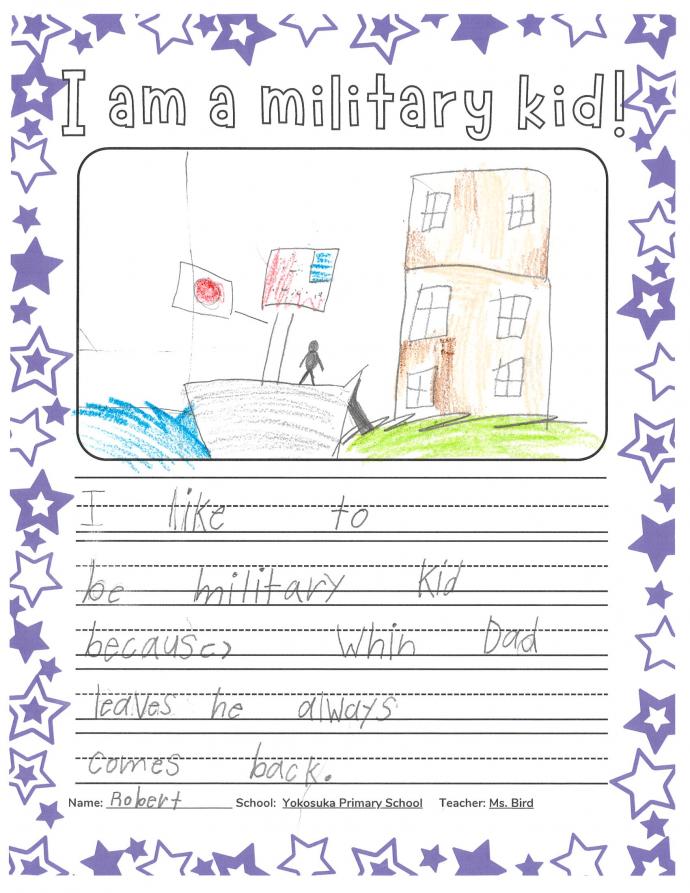 I am a military kid!
I like to
be military kid
because whin Dad
leaves he always
comes back.
Name: Robert School: Yokosuka Primary School Teacher: Ms. Bird